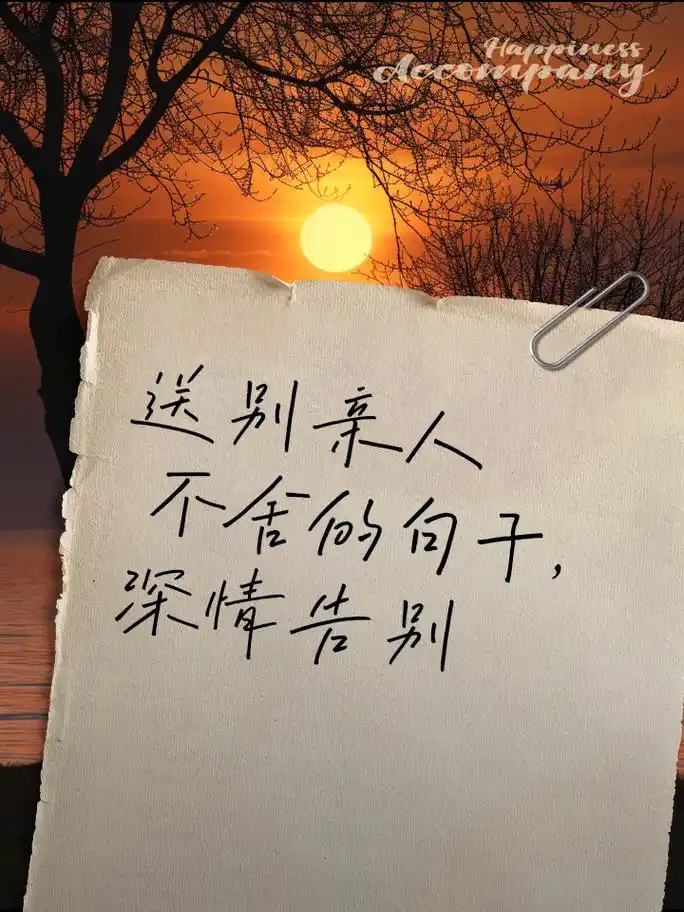 Happiness
Accompany
送别亲人
不舍的句子,
深情告别